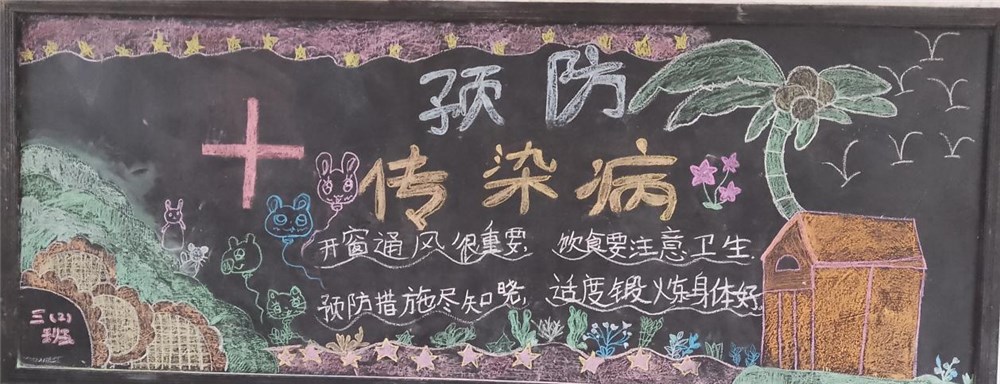 预防
传染病
开窗通风很重要, 饮食要注意卫生.
预防措施尽知晓, 适度锻炼身体好.
三(2)
班